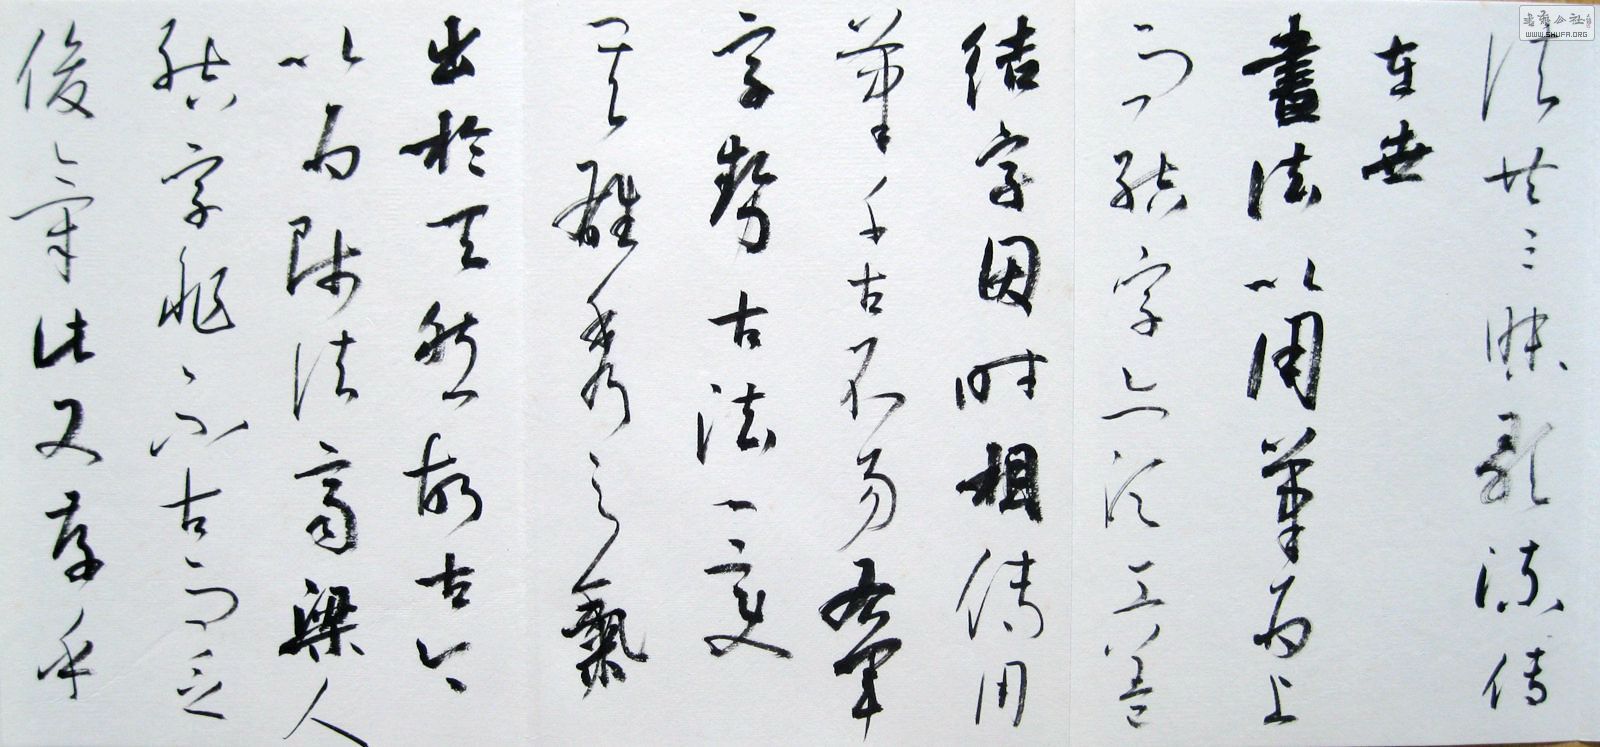 三昧流傳
在世
書法以用筆為上
而結字亦須工蓋
結字因時相傳用
筆千古不易右軍
字勢古法一變
其雄秀之氣
出於天然故古今
以為師法齊梁人
結字非不古而乏
俊氣此又存乎
WWW.SHUFA.ORG